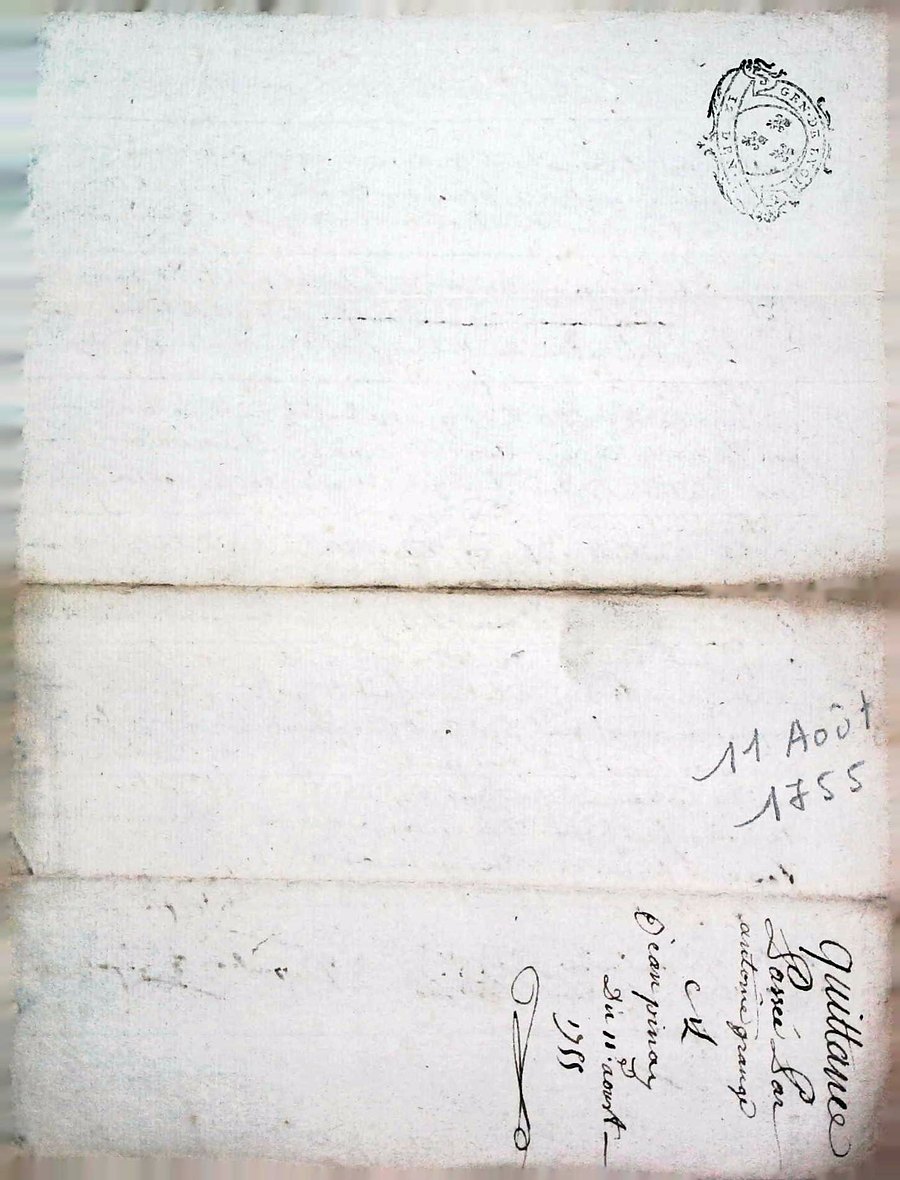 GEN·DE LYON
11 Août
1755
Quittance
Passée Par
antoine grange
A
Jean pinay
Du 11 aoust
1755